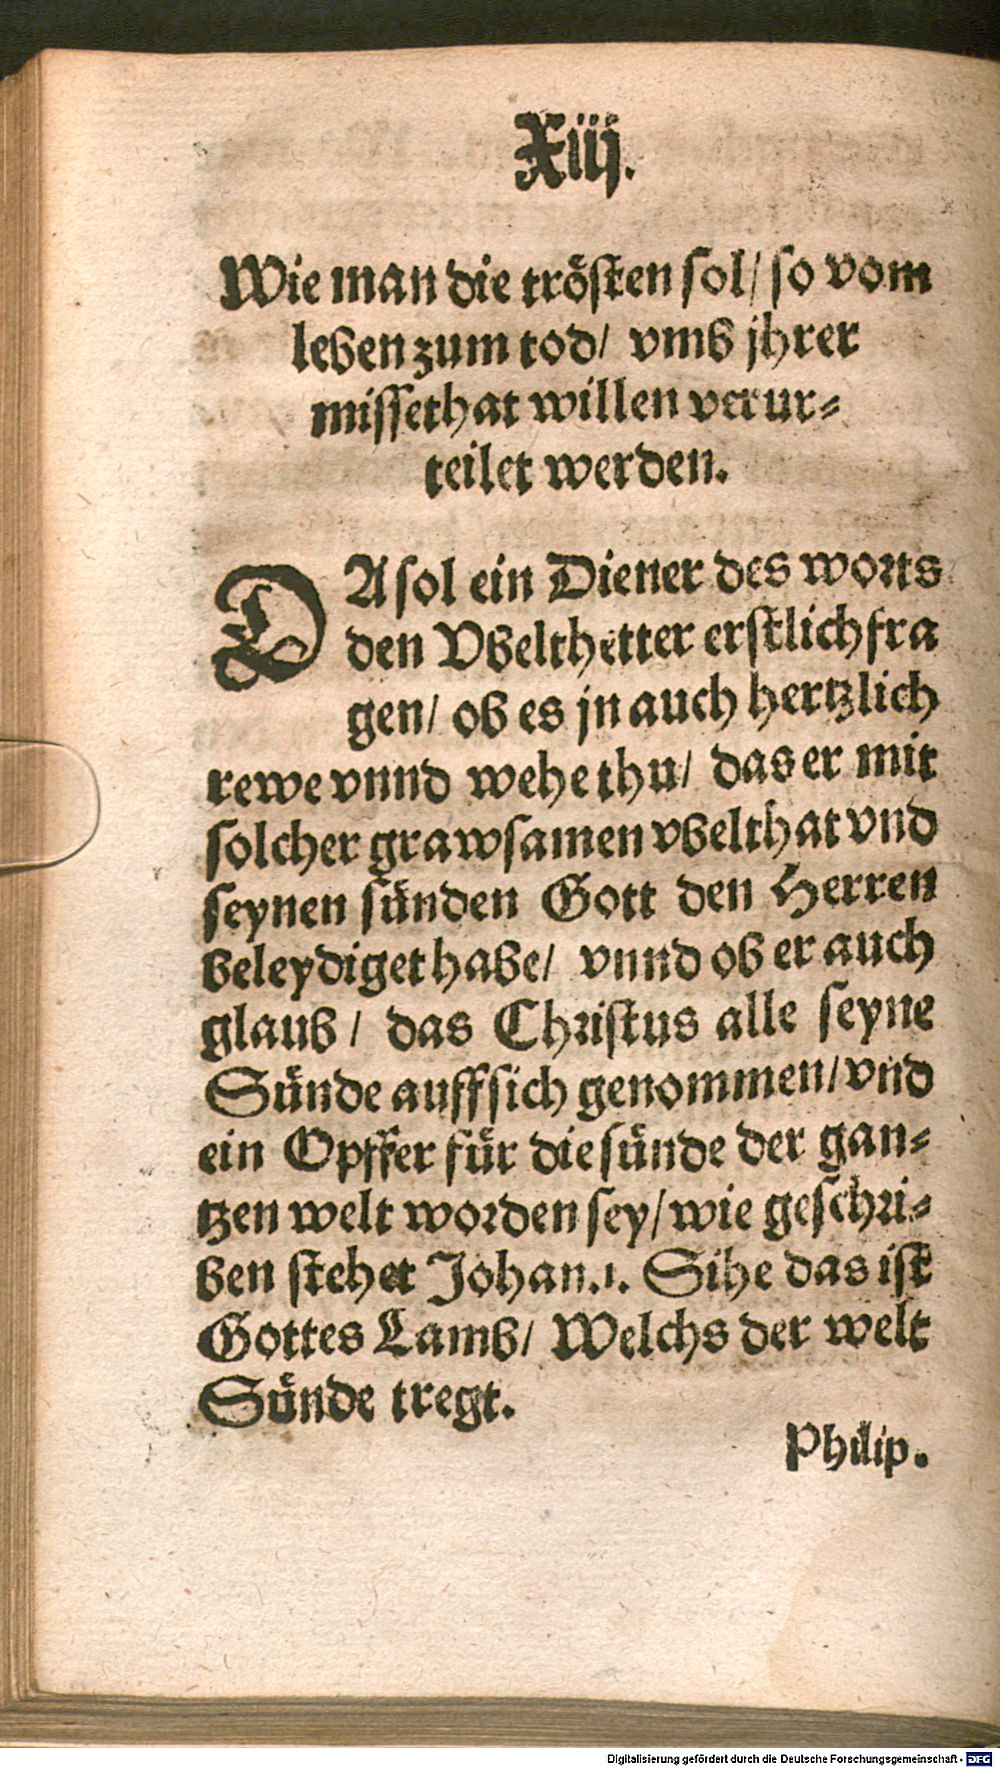 Xiij.
Wie man die trösten sol/ so vom
leben zum tod/ vmb jhrer
missethat willen verur⸗
teilet werden.
DA sol ein Diener des worts
den Vbelthetter erstlich fra
gen/ ob es jn auch hertzlich
rewe vnnd wehe thu/ das er mit
solcher grawsamen vbelthat vnd
seynen sünden Gott den Herren
beleydiget habe/ vnnd ob er auch
glaub/ das Christus alle seyne
Sünde auff sich genommen/ vnd
ein Opffer für die sünde der gan⸗
tzen welt worden sey/ wie geschri⸗
ben stehet Johan.1. Sihe das ist
Gottes Lamb/ Welchs der welt
Sünde tregt.
Philip.
Digitalisierung gefördert durch die Deutsche Forschungsgemeinschaft - DFG